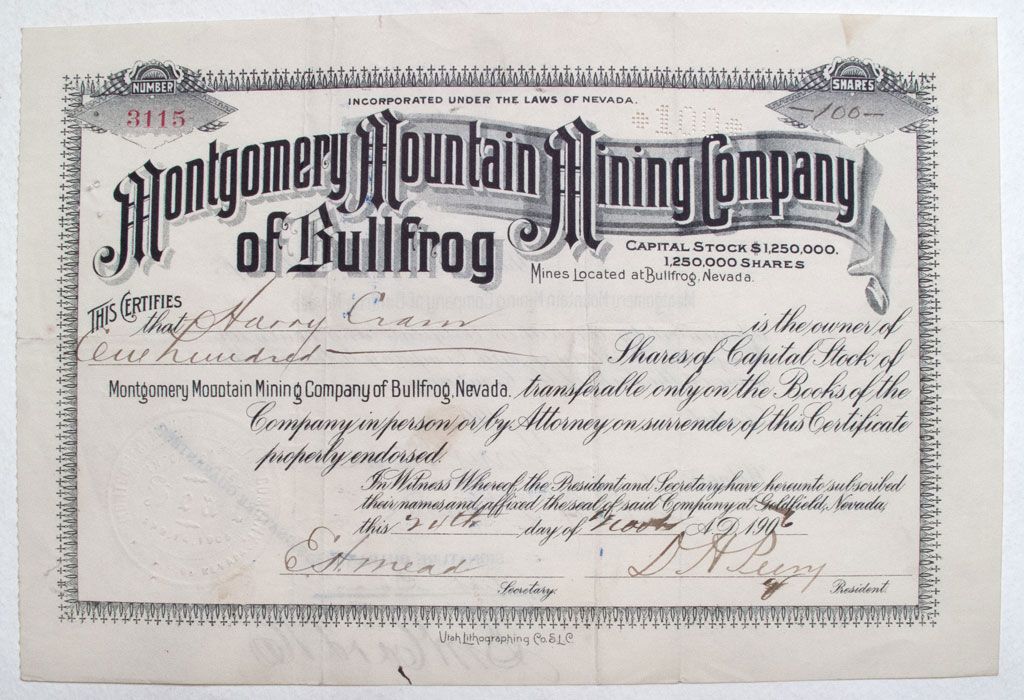 NUMBER
3115
INCORPORATED UNDER THE LAWS OF NEVADA.
100
SHARES
-100-
Montgomery Mountain Mining Company
of Bullfrog
CAPITAL STOCK $1,250,000.
1,250,000 SHARES
Mines Located at Bullfrog, Nevada.
THIS CERTIFIES
that Harry Cram is the owner of
One hundred Shares of Capital Stock of
Montgomery Moontain Mining Company of Bullfrog, Nevada, transferable only on the Books of the
Company in person or by Attorney on surrender of this Certificate
properly endorsed.
In Witness Whereof, the President and Secretary have hereunto subscribed
their names and affixed the seal of said Company at Goldfield, Nevada,
this day of A.D. 1906
E. H. mead D H Perry
Secretary. President.
Utah Lithographing Co. S.L.C.